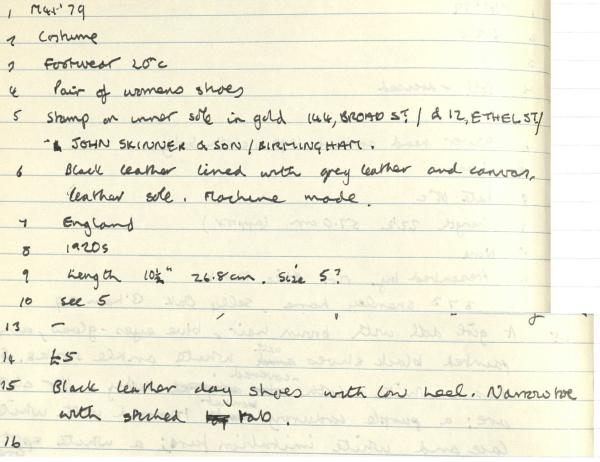 1 M41'79
2 Costume
3 Footwear 20thc
4 Pair of womens shoes
5 Stamp on inner sole in gold 144, BROAD ST / & 12, ETHEL ST/
JOHN SKINNER & SON / BIRMINGHAM.
6 Black leather lined with grey leather and canvas,
leather sole. Machine made.
7 England
8 1920s
9 Length 10½" 26.8cm. Size 5?
10 see 5
13 -
14 £5
15 Black leather day shoes with low heel. Narrow toe
with stitched tab.
16